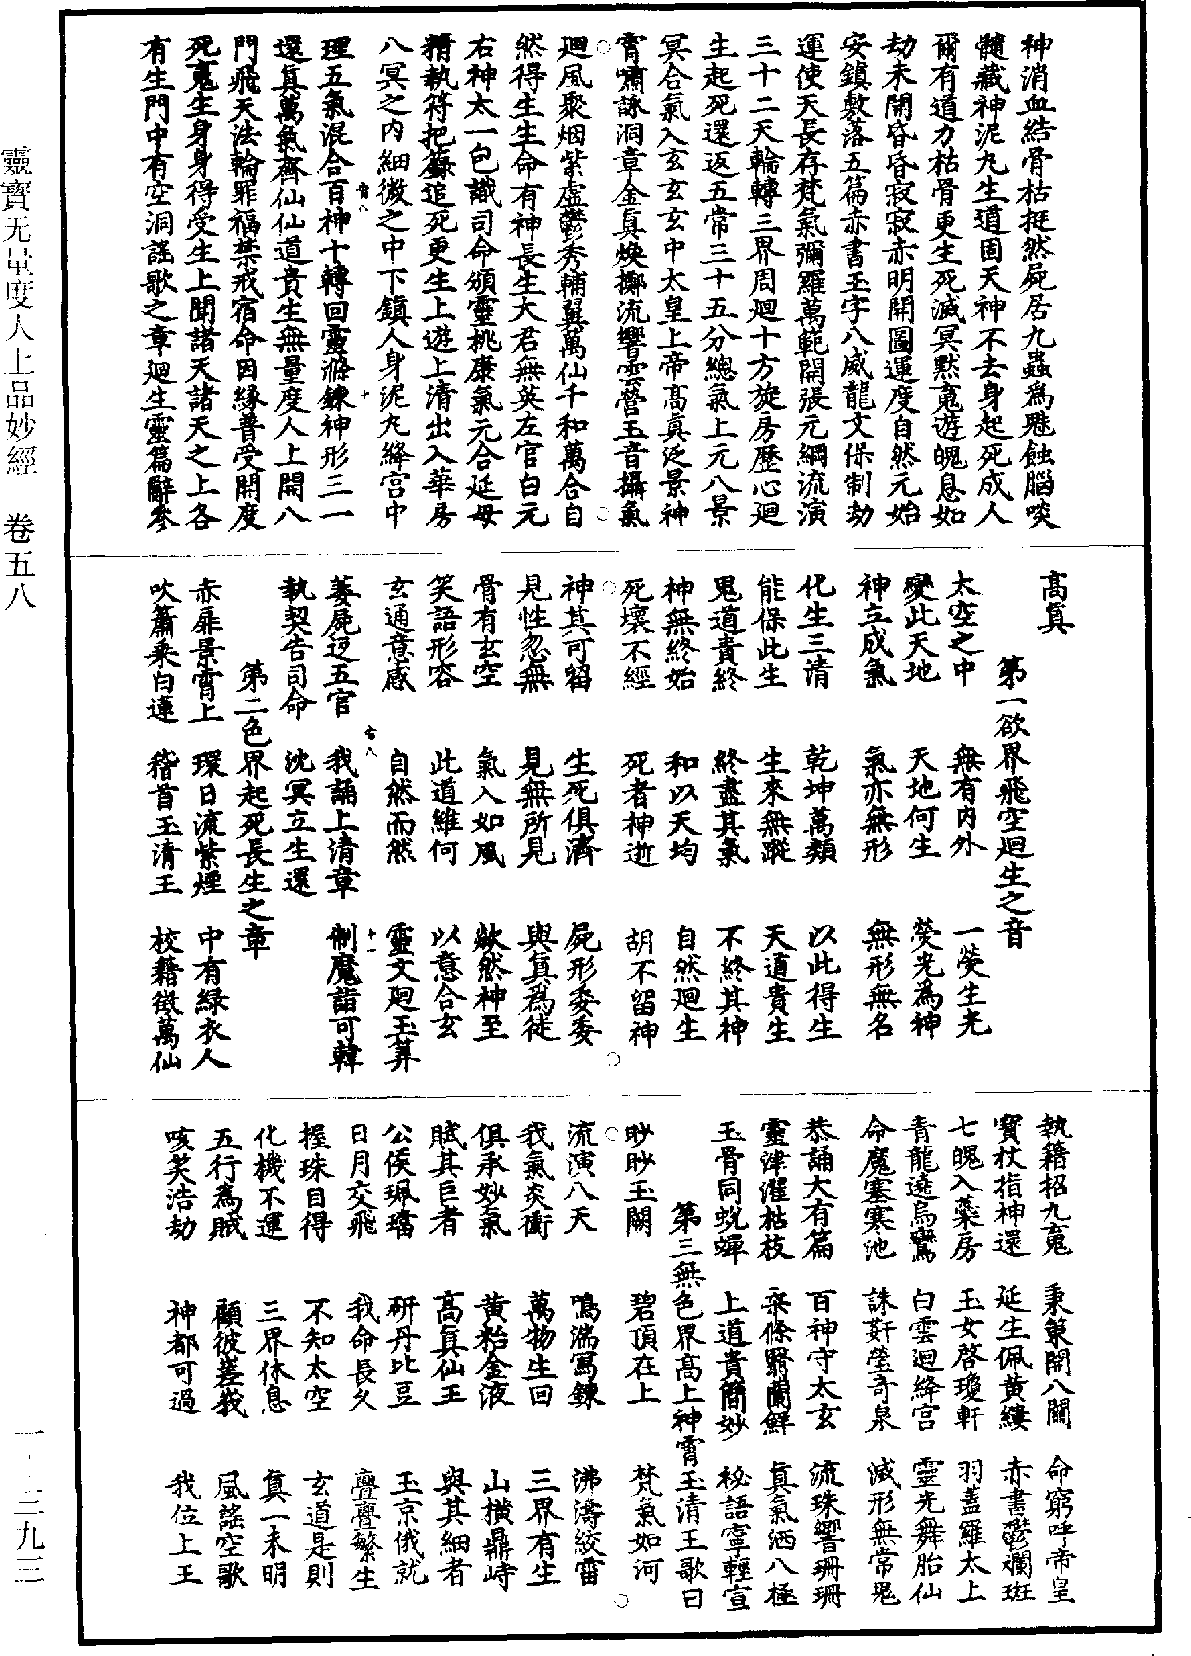 神消血結骨枯挺然屍居九蟲爲魃蝕腦啖
髓藏神泥丸生道固天神不去身起死成人
爾有道力枯骨更生死滅冥黙䰟遊魄息如
劫未開昏昏寂寂赤明開圖運度自然元始
安鎮敷落五篇赤書玉字八威龍文保制劫
運使天長存梵氣彌羅萬範開張元綱流演
三十二天輪轉三界周廻十方旋房歷心廻
生起死還返五常三十五分總氣上元八景
冥合氣入玄玄玄中太皇上帝高眞泛景神
霄嘯詠洞章金眞煥擲流響雲營玉音攝氣
廻風聚烟紫虛鬱秀輔翼萬仙千和萬合自
然得生生命有神長生大君無英左官白元
右神太一包識司命頒靈桃康氣元合延母
精執符把籙追死更生上遊上清出入華房
八冥之内細微之中下鎮人身泥丸絳宫中
理五氣混合百神十轉回靈滌鍊神形三一
還眞萬氣齊仙仙道貴生無量度人上開八
門飛天法輪罪福禁戒宿命因緣普受開度
死䰟生身身得受生上聞諸天諸天之上各
有生門中有空洞謡歌之章廻生靈篇辭參
高眞
第一欲界飛空廻生之音
太空之中 無有内外 一熒生光
變此天地 天地何生 熒光爲神
神立成氣 氣亦無形 無形無名
化生三清 乾坤萬類 以此得生
能保此生 生來無蹤 天道貴生
鬼道貴終 終盡其氣 不終其神
神無終始 和以天均 自然廻生
死壞不經 死者神逝 胡不留神
神其可留 生死俱濟 屍形委委
見性忽無 見無所見 與眞爲徒
骨有玄空 氣入如風 歘然神至
笑語形容 此道維何 以意合玄
玄通意感 自然而然 靈文廻玉筭
萎屍迓五官 我誦上清章 制魔詣可韓
執契告司命 沈冥立生還
第二色界起死長生之章
赤扉景霄上 環日流紫煙 中有緑衣人
吹簫乘白蓮 稽首玉清王 校籍徵萬仙
執籍招九䰟 秉策開八關 命窮呼帝皇
寶杖指神還 延生佩黄縷 赤書鬱斕斑
七魄入藥房 玉女啓瓊軒 羽蓋羅太上
青龍遶烏鸞 白雲廻絳宫 靈光舞胎仙
命魔塞寒池 誅姧瑩奇泉 滅形無常鬼
恭誦大有篇 百神守太玄 流珠響珊珊
靈津濯枯枝 桑條翳蘭鮮 眞氣洒八極
玉骨同蛻蟬 上道貴簡妙 祕語寧輕宣
第三無色界高上神霄玉清王歌曰
眇眇玉闕 碧頂在上 梵氣如河
流演八天 鳴湍寫鍊 沸濤絞雷
我氣炎衝 萬物生回 三界有生
俱承妙氣 黄粭金液 山横鼎峙
賦其巨者 高眞仙王 與其細者
公侯珮璫 研丹比豆 玉京俄就
日月交飛 我命長久 亹亹繁生
握珠目得 不知太空 玄道是則
化機不運 三界休息 眞一未明
五行爲賊 顧彼嵳峩 風謡空歌
咳笑浩劫 神都可過 我位上王
靈寶无量度人上品妙經 卷五八
一·三九三